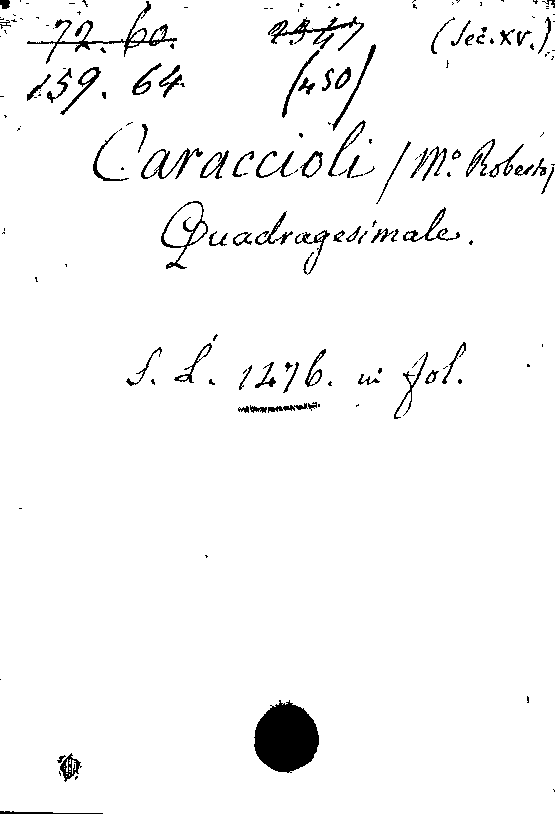 72. 60. 2347 (Sec. XV.)
159. 64 (450)
Caraccioli / Mo. Roberto/
Quadragesimale.
S. L. 1476. in fol.